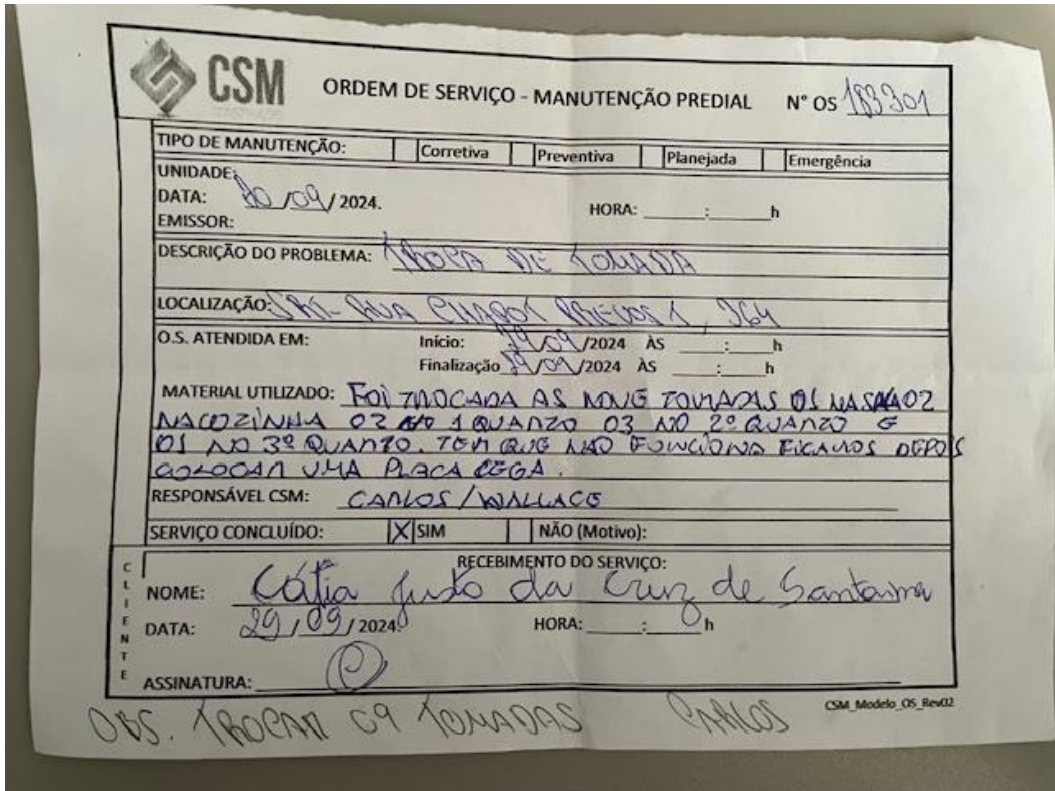 CSM
ORDEM DE SERVIÇO - MANUTENÇÃO PREDIAL N° OS 183301
TIPO DE MANUTENÇÃO: Corretiva Preventiva Planejada Emergência
UNIDADE:
DATA: /09/2024. HORA: ____:____h
EMISSOR:
DESCRIÇÃO DO PROBLEMA: TROCA DE TOMADA
LOCALIZAÇÃO: RUA CHAPOT PREVOST, 264
O.S. ATENDIDA EM: Início: 29/09/2024 ÀS ____:____h
Finalização 29/09/2024 ÀS ____:____h
MATERIAL UTILIZADO: FOI TROCADA AS NOVE TOMADAS 01 NA SALA 02
NA COZINHA 02 NO 1 QUARTO 03 NO 2º QUARTO E
01 NO 3º QUARTO. TEM QUE NÃO FUNCIONA FICAMOS DEPOIS
COLOCAR UMA PLACA CEGA.
RESPONSÁVEL CSM: CARLOS/WALLACE
SERVIÇO CONCLUÍDO: X SIM NÃO (Motivo):
CLIENTE
RECEBIMENTO DO SERVIÇO:
NOME: Cátia Justo da Cruz de Santanna
DATA: 29/09/2024. HORA: ____:____h
ASSINATURA:
CSM_Modelo_OS_Rev02
OBS. TROCAR 09 TOMADAS CARLOS